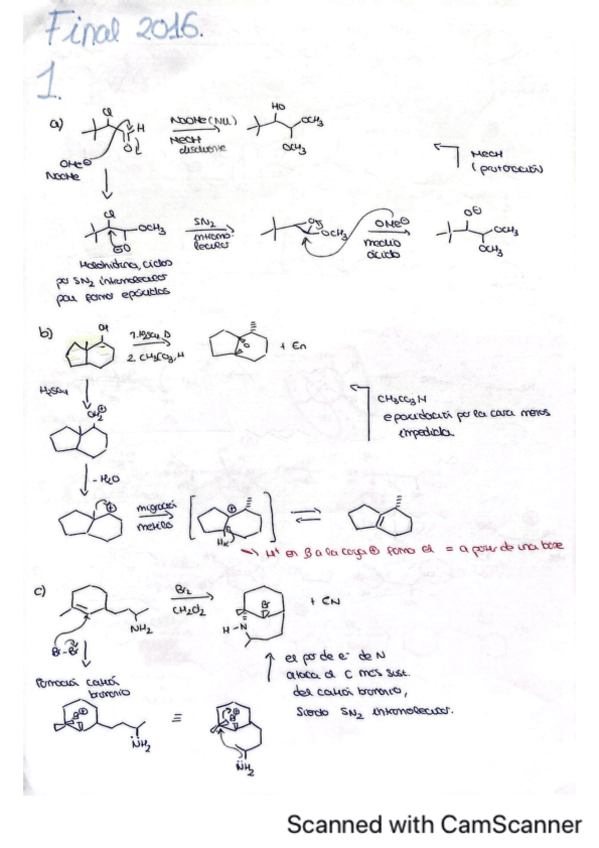 Final 2016.
1.
a)
Cl
H
O
NaOMe (Nu)
MeOH
disolvente
HO
OCH3
OCH3
OMe⊖
NaOMe
MeOH
(protonación)
Cl
OCH3
SN2
intramo-
lecular
OCH3
OMe⊖
medio
O⊖
OCH3
OCH3
por SN2 intramolecular
para formar epóxidos
b)
OH
1. H2SO4, Δ
2. CH3CO3H
O
+ En
H2SO4
OH2⊕
CH3CO3H
epoxidación por la cara menos
impedida.
- H2O
⊕
migración
metilo
⊕
H
→ H+ en β a la carga ⊕ forma el = a partir de una base
c)
NH2
Br2
CH2Cl2
Br
H-N
+ EN
Br-Br
Formación catión
bromonio
el par de e- de N
ataca al C más sust.
del catión bromonio,
siendo SN2 intramolecular.
Br⊕
NH2
≡
Br⊕
NH2
Scanned with CamScanner